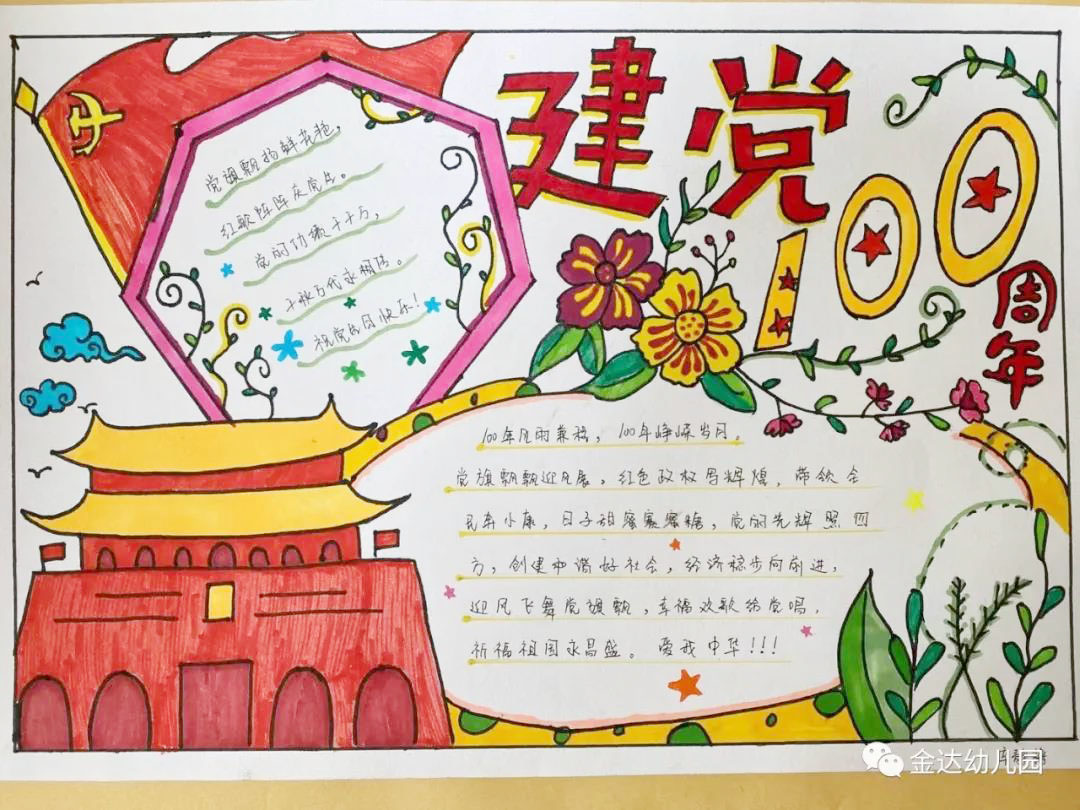 建党100
周年
党旗飘扬鲜花艳,
红歌阵阵庆党生。
党的功绩千千万,
千秋万代永相传。
祝党生日快乐!
100年风雨兼程,100年峥嵘岁月,
党旗飘飘迎风展,红色政权写辉煌,带领全
民奔小康,日子甜蜜蜜蜜糖,党的光辉照四
方,创建和谐好社会,经济稳步向前进,
迎风飞舞党旗飘,幸福欢歌给党唱,
祈福祖国永昌盛。爱我中华!!!
金达幼儿园